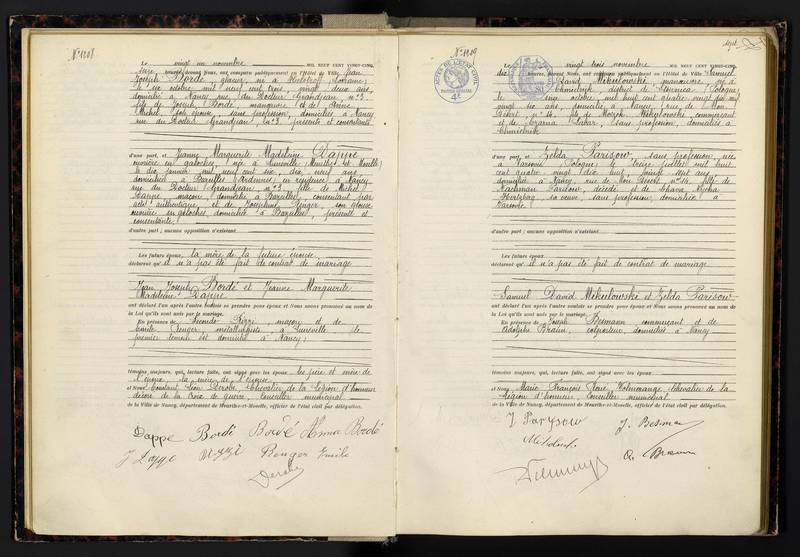 N° 1208
Le vingt un novembre MIL NEUF CENT VINGT-CINQ,
heures, devant Nous, ont comparu publiquement en l'Hôtel de Ville Jean
Joseph Bordé, glacier, né à (Lorraine)
le six octobre mil neuf cent trois, vingt deux ans,
domicilié à Nancy rue du Docteur Grandjean, n° 3
fils de Joseph Bordé manœuvre et de Anne
Michel, son épouse, sans profession, domiciliés à Nancy
rue du Docteur Grandjean, n° 3 présents et consentants
d'une part, et Jeanne Marguerite Madeleine Dappe
ouvrière en galoches, née à Lunéville (Meurthe et Moselle)
le dix janvier mil neuf cent six, dix neuf ans,
domiciliée à Bazeilles (Ardennes) en résidence à Nancy
rue du Docteur Grandjean, n° 3 fille de Michel
Dappe, maçon, domicilié à Bazeilles, consentant par
acte authentique, et de Joséphine Renger son épouse
ouvrière en galoches, domiciliée à Bazeilles, présente et
consentante
d'autre part ; aucune opposition n'existant
Les futurs époux, la mère de la future épouse
déclarent qu'il n'a pas été fait de contrat de mariage
Jean Joseph Bordé et Jeanne Marguerite
Madeleine Dappe
ont déclaré l'un après l'autre vouloir se prendre pour époux et Nous avons prononcé au nom de
la Loi qu'ils sont unis par le mariage.
En présence de Secondo Rizzi, maçon et de
Emile Renger, métallurgiste à Lunéville le
premier témoin est domicilié à Nancy,
témoins majeurs, qui, lecture faite, ont signé avec les époux les père et mère de
l'époux, la mère de l'épouse
et Nous Constant Léon Derobe, Chevalier de la Légion d'honneur
décoré de la croix de guerre, Conseiller municipal
de la Ville de Nancy, département de Meurthe-et-Moselle, officier de l'état civil par délégation.
Dappe Bordé Bordé Anna Bordé
J Dappe Rizzi Renger Emile
Derobe
sept
N° 1209
Le vingt trois novembre MIL NEUF CENT VINGT-CINQ,
dix heures, devant Nous, ont comparu publiquement en l'Hôtel de Ville Samuel
David Mekulowski, manœuvre, né à
Chmielnik, district de (Pologne)
le octobre, mil huit cent quatre vingt dix
vingt six ans, domicilié à Nancy, rue de Mon
Désert, n° 14, fils de commerçant
et de sans profession, domiciliés à
Chmielnik
d'une part, et Zelda Parisow, sans profession, née
à Varsovie (Pologne) le treize juillet mil huit
cent quatre vingt dix huit, vingt sept ans
domiciliée à Nancy, rue de Mon Désert n° 14, fille de
Nachman Parisow décédé et de Chawa
Hertzbag sa veuve, sans profession, domiciliée à
Varsovie
d'autre part ; aucune opposition n'existant
Les futurs époux
déclarent qu'il n'a pas été fait de contrat de mariage
Samuel David Mekulowski et Zelda Parisow
ont déclaré l'un après l'autre vouloir se prendre pour époux et Nous avons prononcé au nom de
la Loi qu'ils sont unis par le mariage.
En présence de Joseph Besmann, commerçant et de
Adolphe Braun, colporteur, domiciliés à Nancy
témoins majeurs, qui, lecture faite, ont signé avec les époux
et Nous Marie François René Chevalier de la
Légion d'honneur Conseiller municipal
de la Ville de Nancy, département de Meurthe-et-Moselle, officier de l'état civil par délégation.
Parysow J. Besman
A. Braun